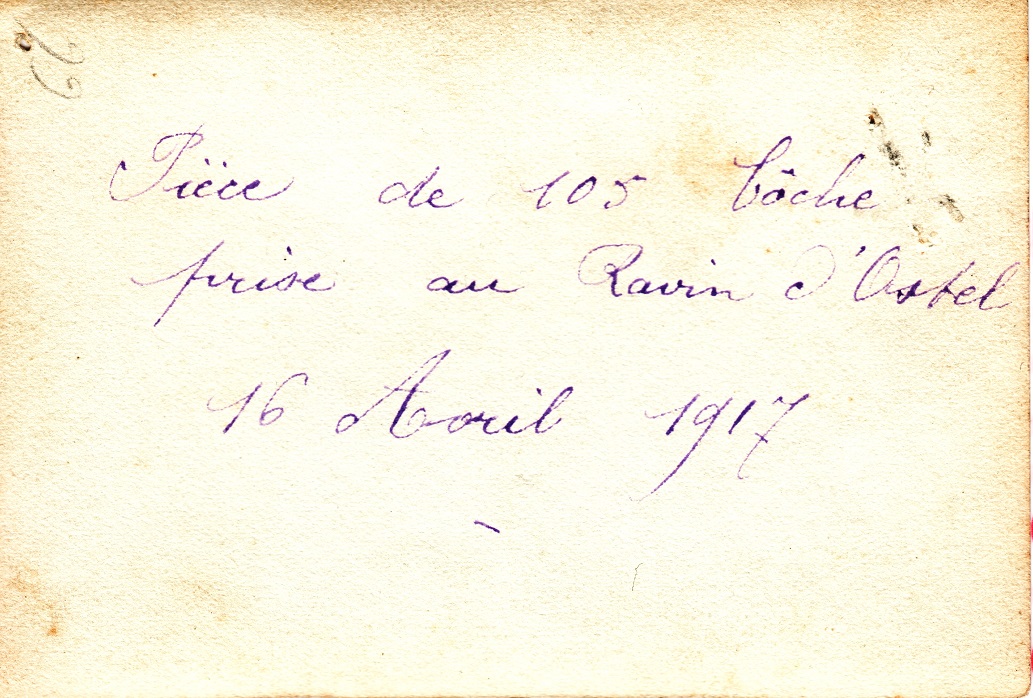 Pièce de 105 bôche
prise au Ravin d'Ostel
16 Avril 1917